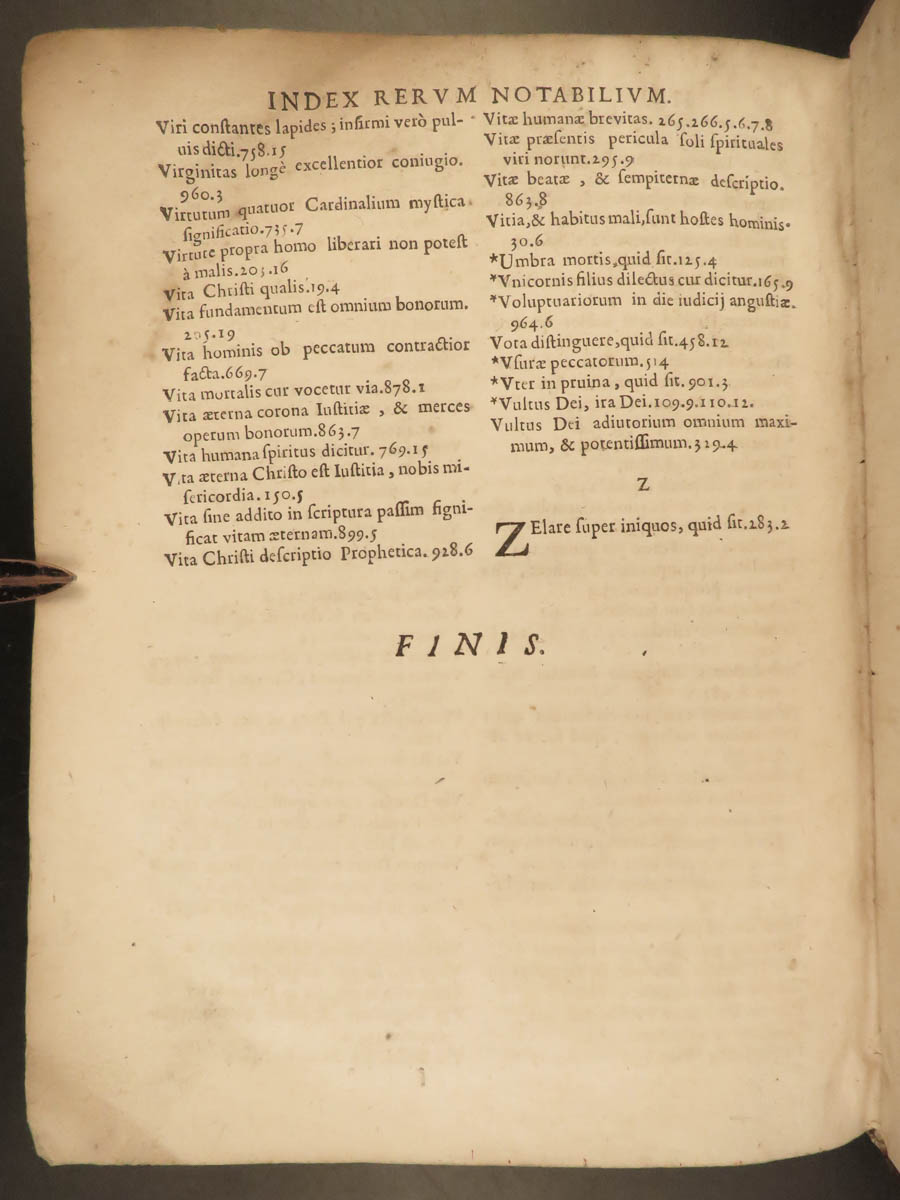 INDEX RERVM NOTABILIVM.
Viri conſtantes lapides ; infirmi verò pul-
uis dicti.758.15
Virginitas longè excellentior coniugio.
960.3
Virtutum quatuor Cardinalium myſtica
ſignificatio.735.7
Virtute propra homo liberari non poteſt
à malis.205.16
Vita Chriſti qualis.19.4
Vita fundamentum eſt omnium bonorum.
205.19
Vita hominis ob peccatum contractior
facta.669.7
Vita mortalis cur vocetur via.878.1
Vita æterna corona Iuſtitiæ , & merces
operum bonorum.863.7
Vita humana ſpiritus dicitur. 769.15
Vita æterna Chriſto eſt Iuſtitia , nobis mi-
ſericordia. 150.5
Vita ſine addito in ſcriptura paſſim ſigni-
ficat vitam æternam.899.5
Vita Chriſti deſcriptio Prophetica. 928.6
Vitæ humanæ brevitas. 265.266.5.6.7.8
Vitæ præſentis pericula ſoli ſpirituales
viri norunt.295.9
Vitæ beatæ , & ſempiternæ deſcriptio.
863.8
Vitia,& habitus mali,ſunt hoſtes hominis.
30.6
*Umbra mortis,quid ſit.125.4
*Vnicornis filius dilectus cur dicitur.165.9
*Voluptuariorum in die iudicij anguſtiæ.
964.6
Vota diſtinguere,quid ſit.458.12
*Vſuræ peccatorum.514
*Vter in pruina , quid ſit. 901.3
*Vultus Dei, ira Dei.109.9.110.12.
Vultus Dei adiutorium omnium maxi-
mum, & potentiſſimum.329.4
Z
ZElare ſuper iniquos, quid ſit.283.2
FINIS.